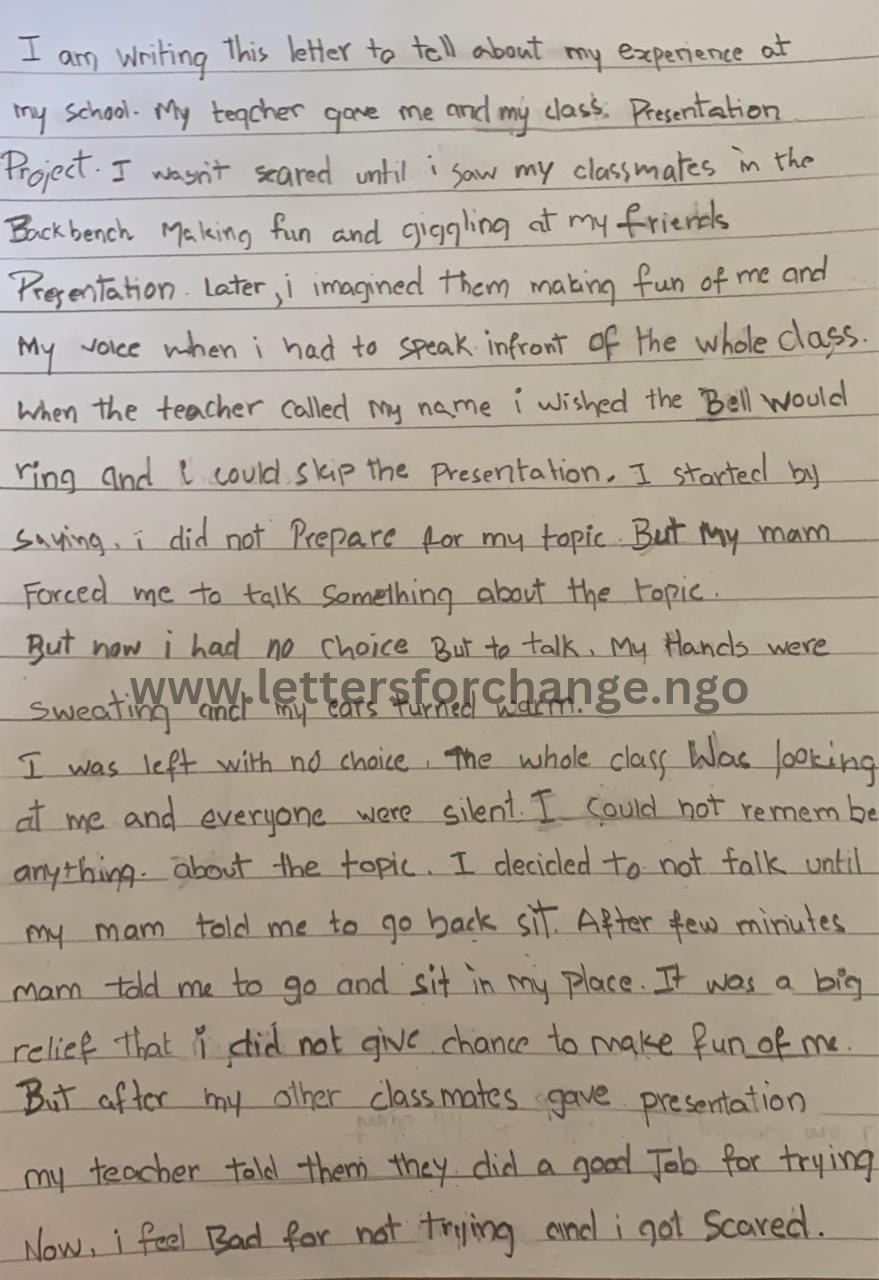 I am writing this letter to tell about my experience at
my school. My teacher gave me and my class. Presentation
Project. I wasn't scared until i saw my classmates in the
Backbench Making fun and giggling at my friends
Presentation. Later, i imagined them making fun of me and
My voice when i had to speak infront of the whole class.
When the teacher called my name i wished the Bell would
ring and i could skip the presentation. I started by
saying. i did not Prepare for my topic. But My mam
Forced me to talk something about the topic.
But now i had no choice But to talk. My Hands were
www.lettersforchange.ngo
sweating and my ears turned warm.
I was left with no choice. The whole class Was looking
at me and everyone were silent. I could not remembe
anything. about the topic. I decided to not talk until
my mam told me to go back sit. After few miniutes
mam told me to go and sit in my place. It was a big
relief that i did not give chance to make fun of me.
But after my other classmates gave presentation
my teacher told them they did a good Job for trying
Now, i feel Bad for not trying and i got scared.